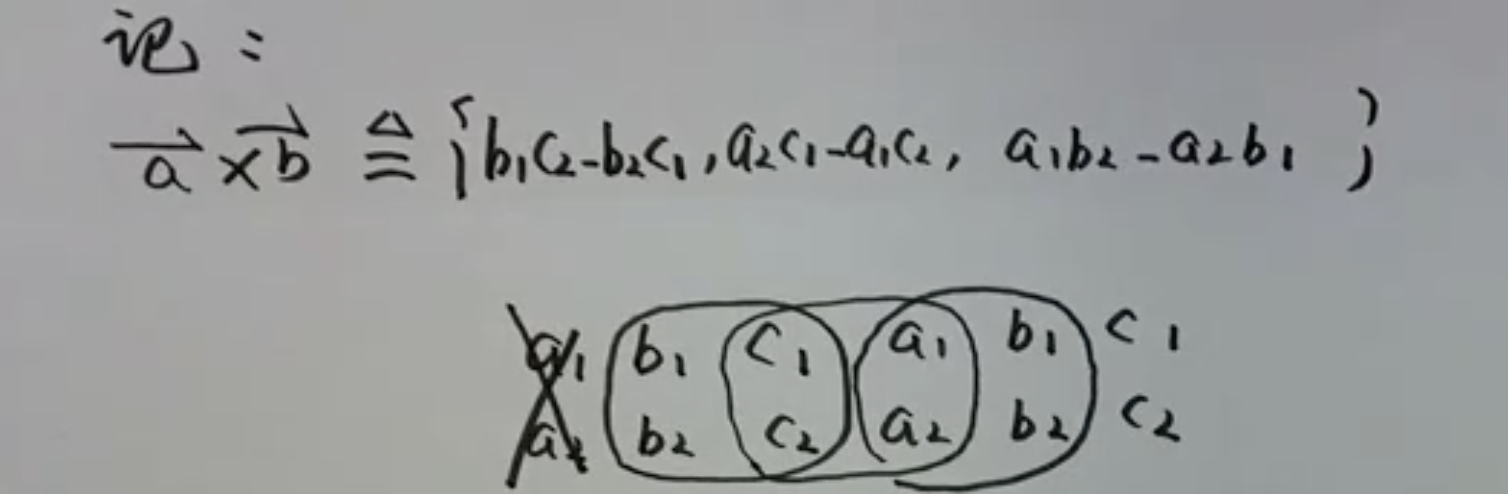 记：
a⃗×b⃗ ≜ {b₁c₂-b₂c₁, a₂c₁-a₁c₂, a₁b₂-a₂b₁}
a₁ b₁ c₁ a₁ b₁ c₁
a₂ b₂ c₂ a₂ b₂ c₂